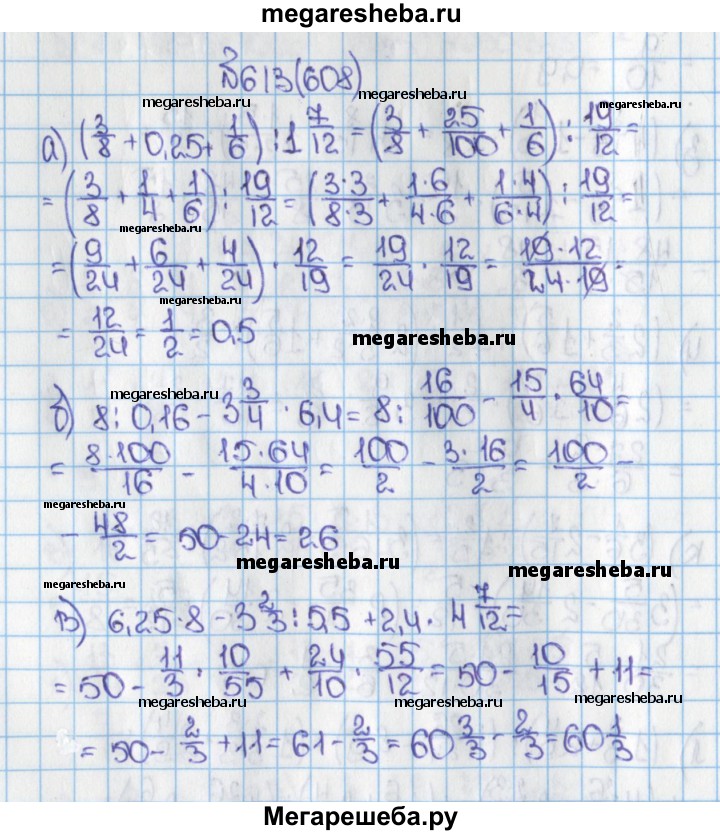 megaresheba.ru
№613(608)
megaresheba.ru megaresheba.ru
а) (3/8 + 0,25 + 1/6) : 1 7/12 = (3/8 + 25/100 + 1/6) : 19/12 =
= (3/8 + 1/4 + 1/6) : 19/12 = (3·3/8·3 + 1·6/4·6 + 1·4/6·4) : 19/12 =
megaresheba.ru
= (9/24 + 6/24 + 4/24) · 12/19 = 19/24 · 12/19 = 19·12/24·19 =
megaresheba.ru megaresheba.ru
= 12/24 = 1/2 = 0,5
megaresheba.ru
megaresheba.ru
б) 8 : 0,16 - 3 3/4 · 6,4 = 8 : 16/100 - 15/4 · 64/10 =
= 8·100/16 - 15·64/4·10 = 100/2 - 3·16/2 = 100/2 -
megaresheba.ru
- 48/2 = 50 - 24 = 26
megaresheba.ru
megaresheba.ru megaresheba.ru
в) 6,25·8 - 3 2/3 : 5,5 + 2,4 · 4 7/12 =
= 50 - 11/3 · 10/55 + 24/10 · 55/12 = 50 - 10/15 + 11 =
megaresheba.ru megaresheba.ru
= 50 - 2/3 + 11 = 61 - 2/3 = 60 3/3 - 2/3 = 60 1/3
megaresheba.ru megaresheba.ru
Мегарешеба.ру